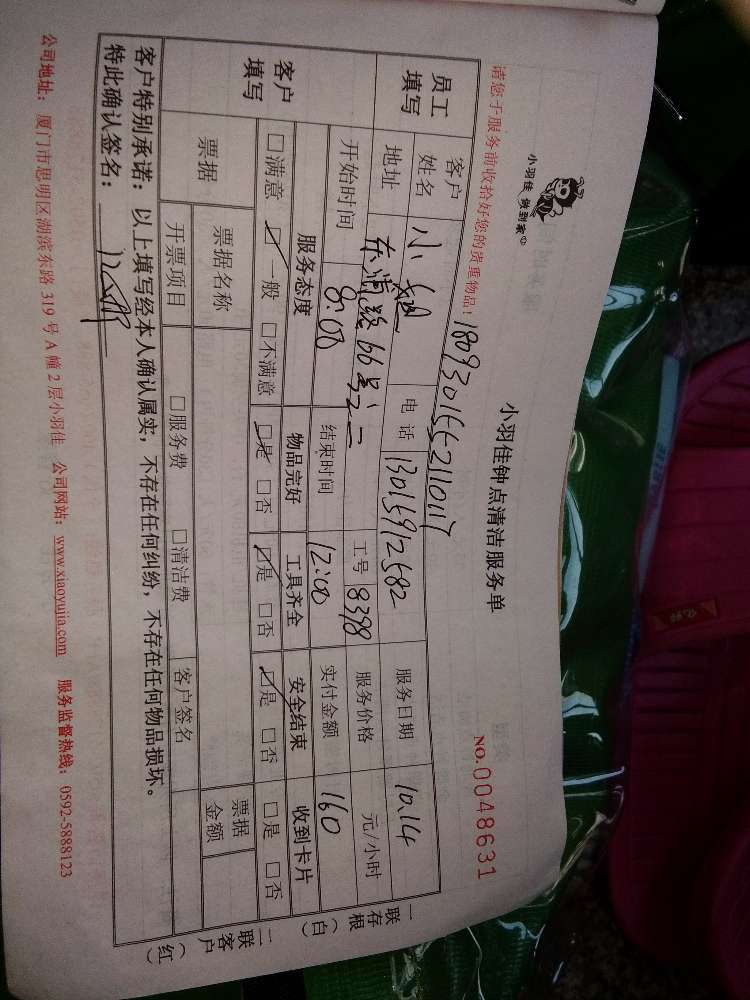 小羽佳 做到家
小羽佳钟点清洁服务单
请您于服务前收拾好您的贵重物品！
NO.0048631
员工填写 客户姓名 小 电话 13015912582 服务日期 10.14
地址 66号之二 工号 8398 服务价格 元/小时
开始时间 8:00 结束时间 12:00 实付金额 160
客户填写 服务态度 物品完好 工具齐全 安全结束 收到卡片
□满意 ☑一般 □不满意 ☑是 □否 ☑是 □否 ☑是 □否 □是 □否
票据 票据名称 票据金额
开票项目 □服务费 □清洁费 客户签名
客户特别承诺：以上填写经本人确认属实，不存在任何纠纷，不存在任何物品损坏。
特此确认签名：
一联存根（白）
二联客户（红）
公司地址：厦门市思明区湖滨东路 319 号 A 幢 2 层小羽佳 公司网站：www.xiaoyujia.com 服务监督热线：0592-5888123